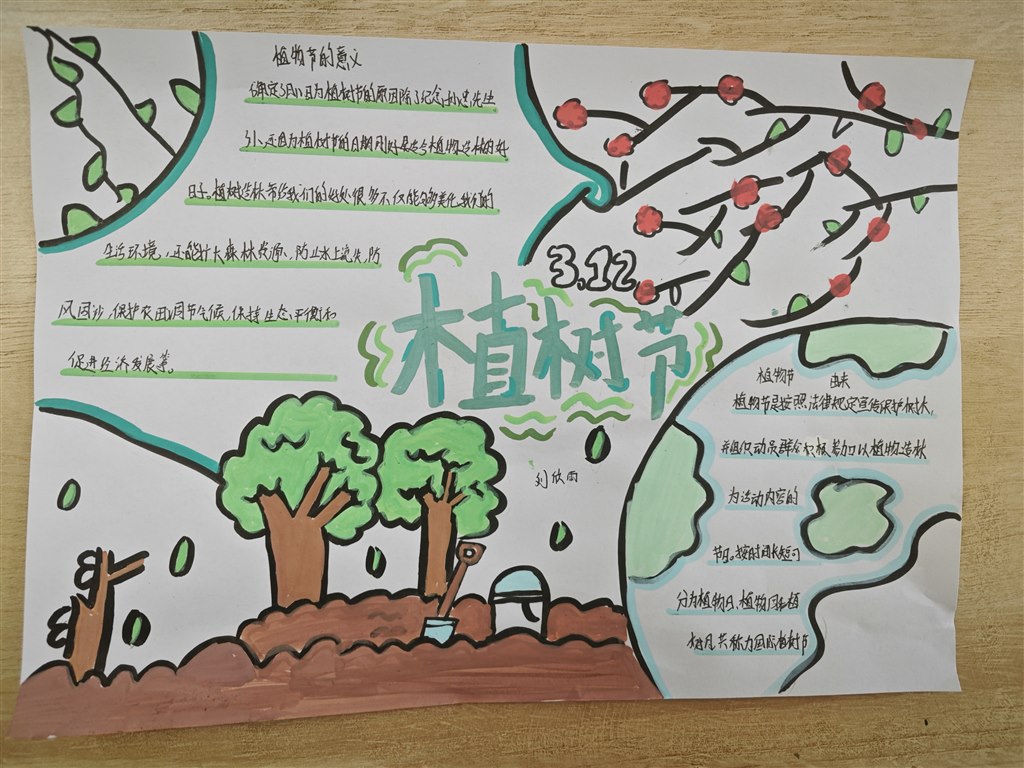 植物节的意义
确定3月12日为植树节的原因除了纪念孙忠先生
外,还因为植树节的日期同时是适合植物造林的好
日子。植树造林带给我们的好处很多不仅能够美化我们的
生活环境,还能扩大森林资源,防止水土流失,防
风固沙,保护农田,调节气候,保持生态平衡和
促进经济发展等。
3.12
植树节
刘欣雨
植物节 由来
植物节是按照法律规定宣传保护树木,
并组织动员群众积极参加以植物造林
为活动内容的
节日。按时间长短可
分为植物日、植物周和植
树月,共称为国际植树节